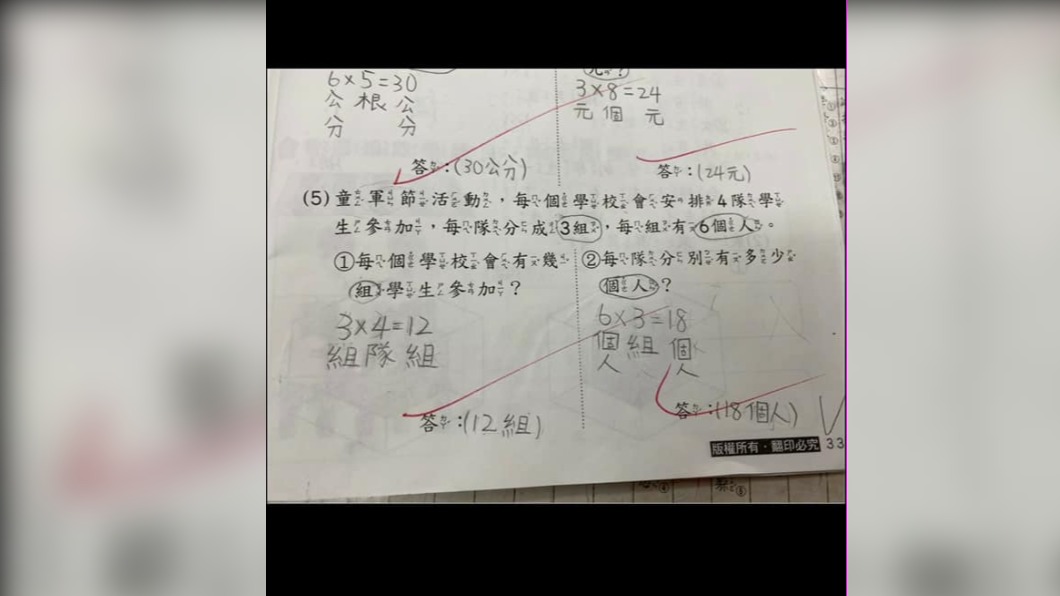 元?
6×5=30
公 根 公
分 分
答:(30公分)
3×8=24
元 個 元
答:(24元)
(5) 童軍節活動,每個學校會安排4隊學
生參加,每隊分成3組,每組有6個人。
①每個學校會有幾
組學生參加?
3×4=12
組 隊 組
答:(12組)
②每隊分別有多少
個人?
6×3=18
個 組 個
人 人
答:(18個人)
版權所有·翻印必究 33